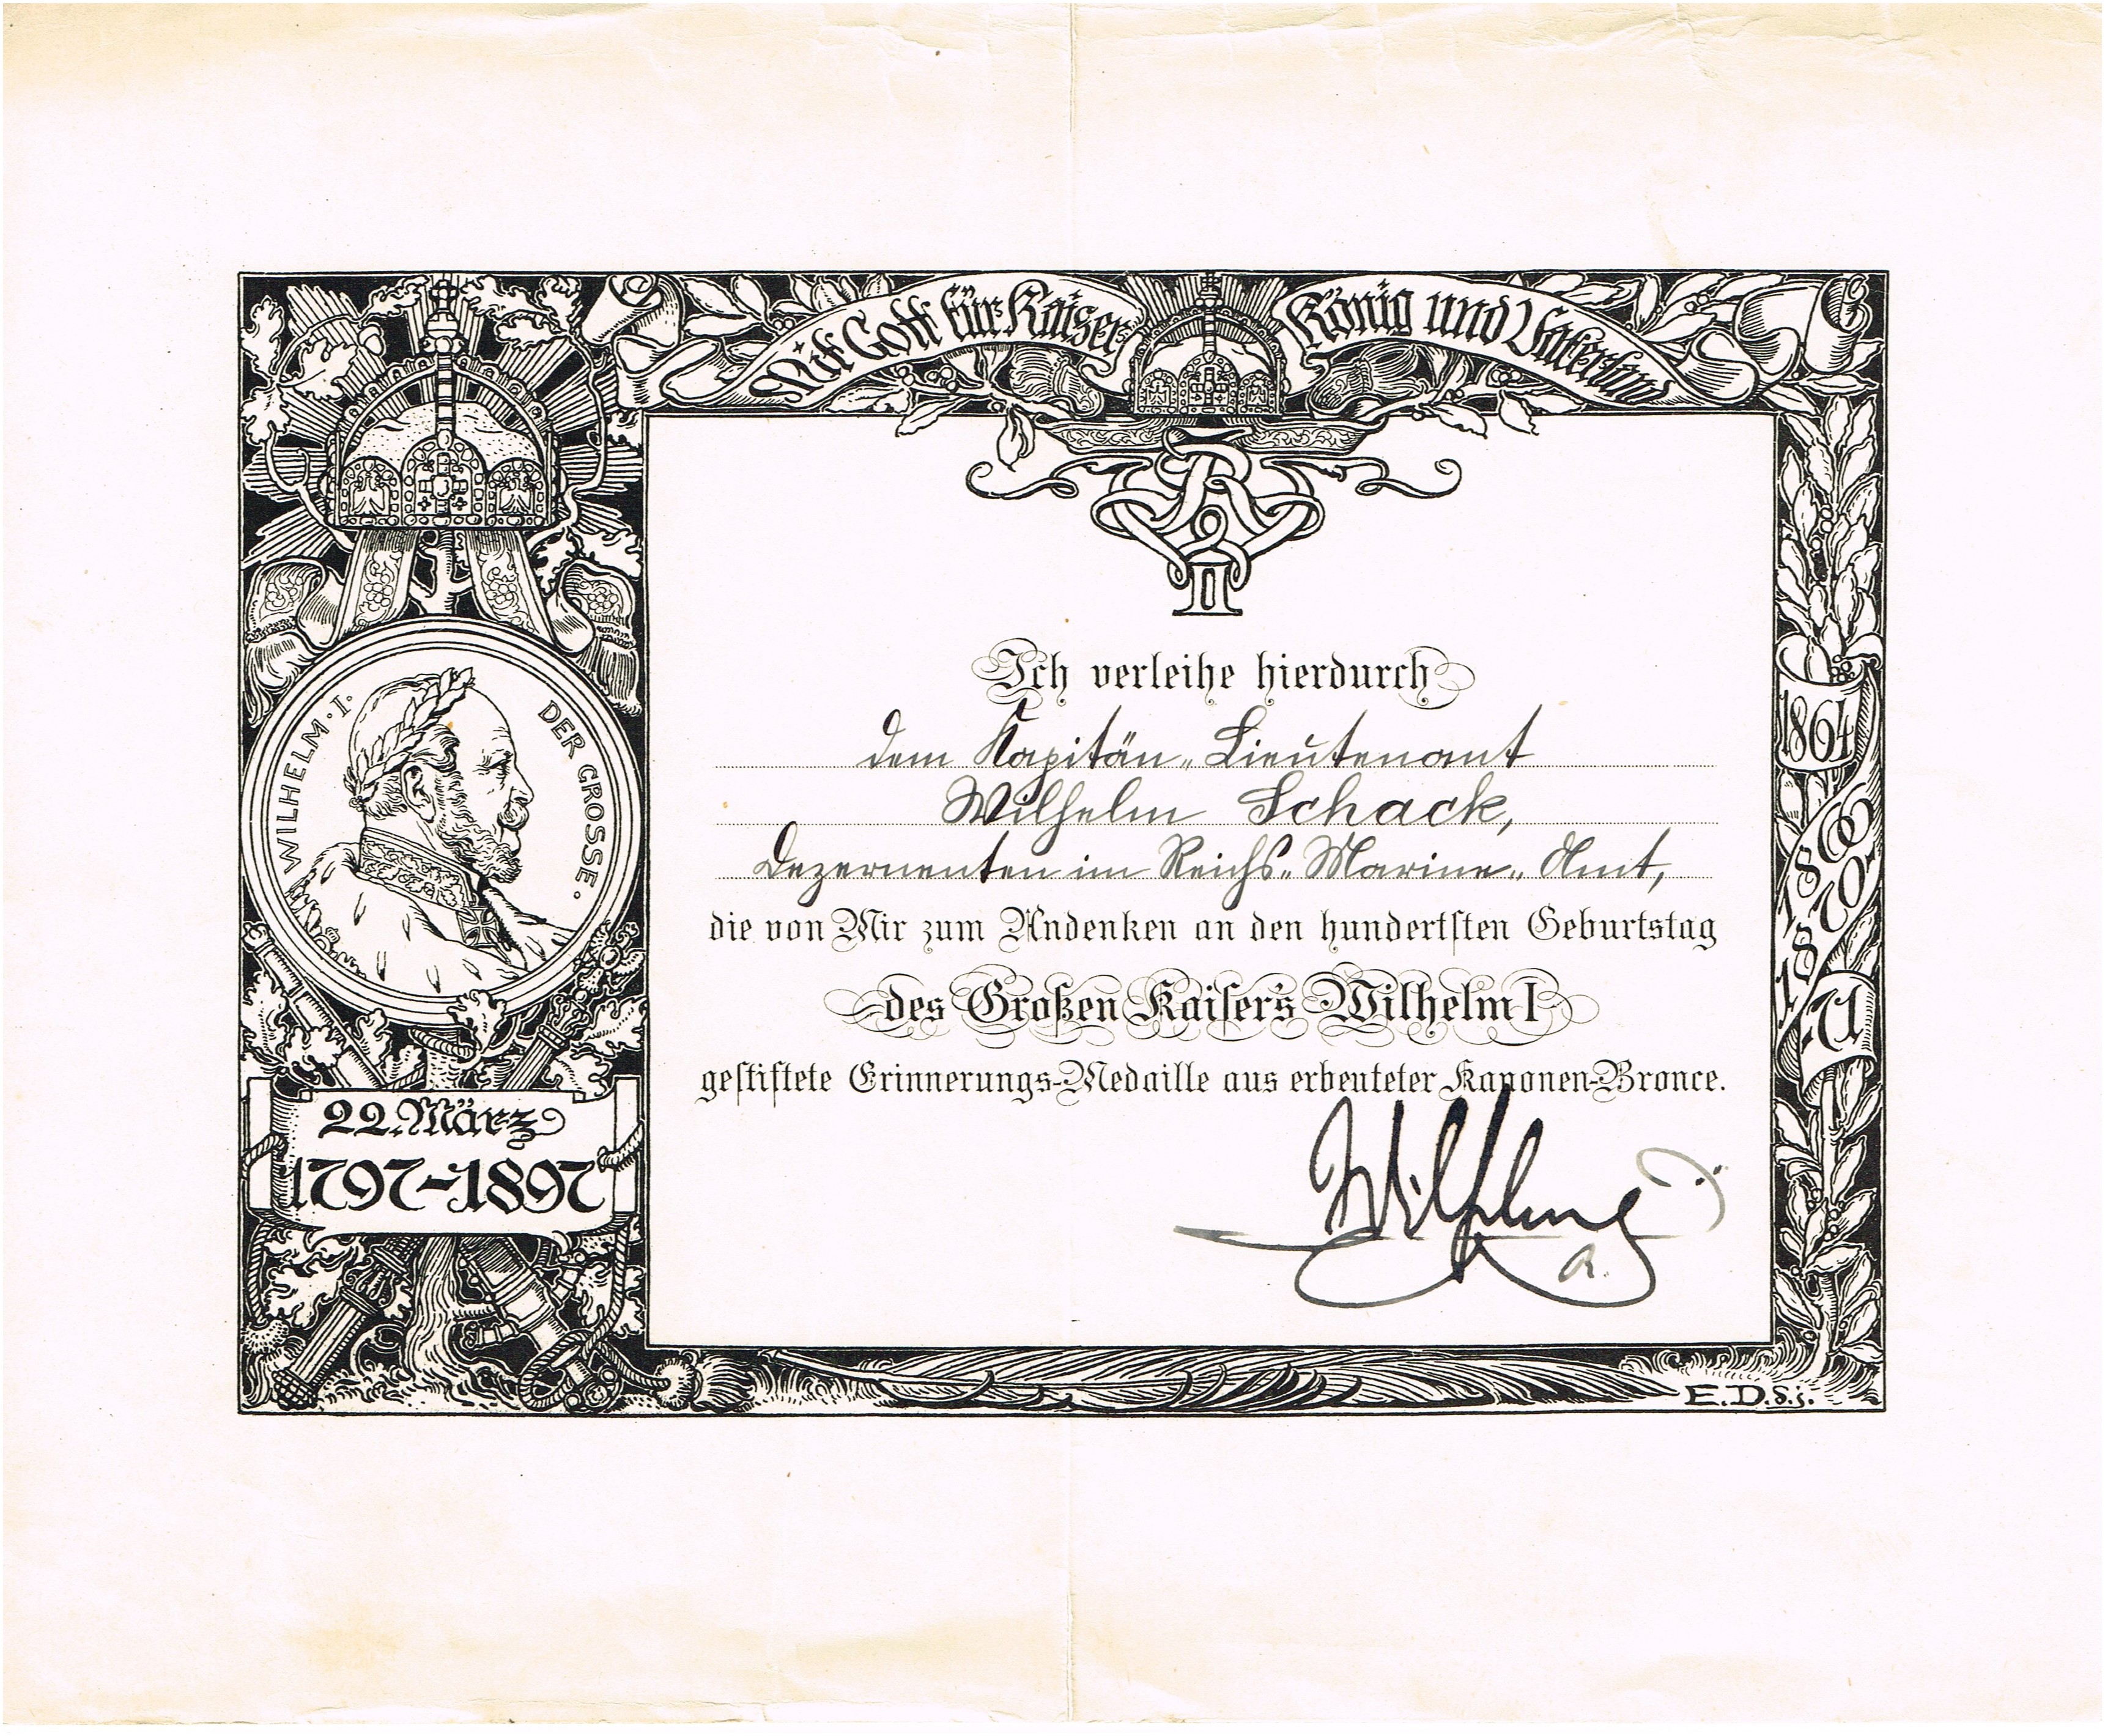 Mit Gott für Kaiser
König und Vaterland
WILHELM · I ·
DER GROSSE ·
22. März
1797–1897
W II
Ich verleihe hierdurch
dem Kapitän-Lieutenant
Wilhelm Schack,
Dezernenten im Reichs-Marine-Amt,
die von Mir zum Andenken an den hundertsten Geburtstag
des Großen Kaisers Wilhelm I
gestiftete Erinnerungs-Medaille aus erbeuteter Kanonen-Bronce.
Wilhelm
R.
1864
1866
1870
1871
E. D. d. j.